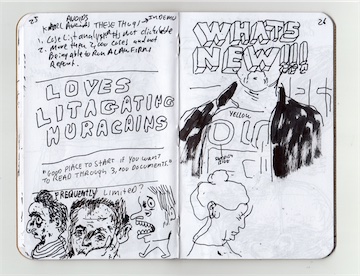 25
AUDIOS
THESE THUGS
1. CASE LIST ANALYSIS IS NOT CLICKABLE
2. MORE THAN 2,000 CASES AND NOT
BEING ABLE TO RUN A CLAIM
REPORT.
LOVES
LITAGATING
HURACAINS
"GOOD PLACE TO START IF YOU WANT
TO READ THROUGH 3,000 DOCUMENTS."
FREQUENTLY LIMITED?
26
WHATS
NEW!!!
YELLOW